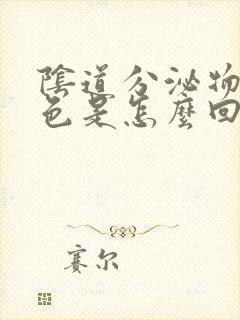 陰道分泌物
色是怎麼回
賽尔